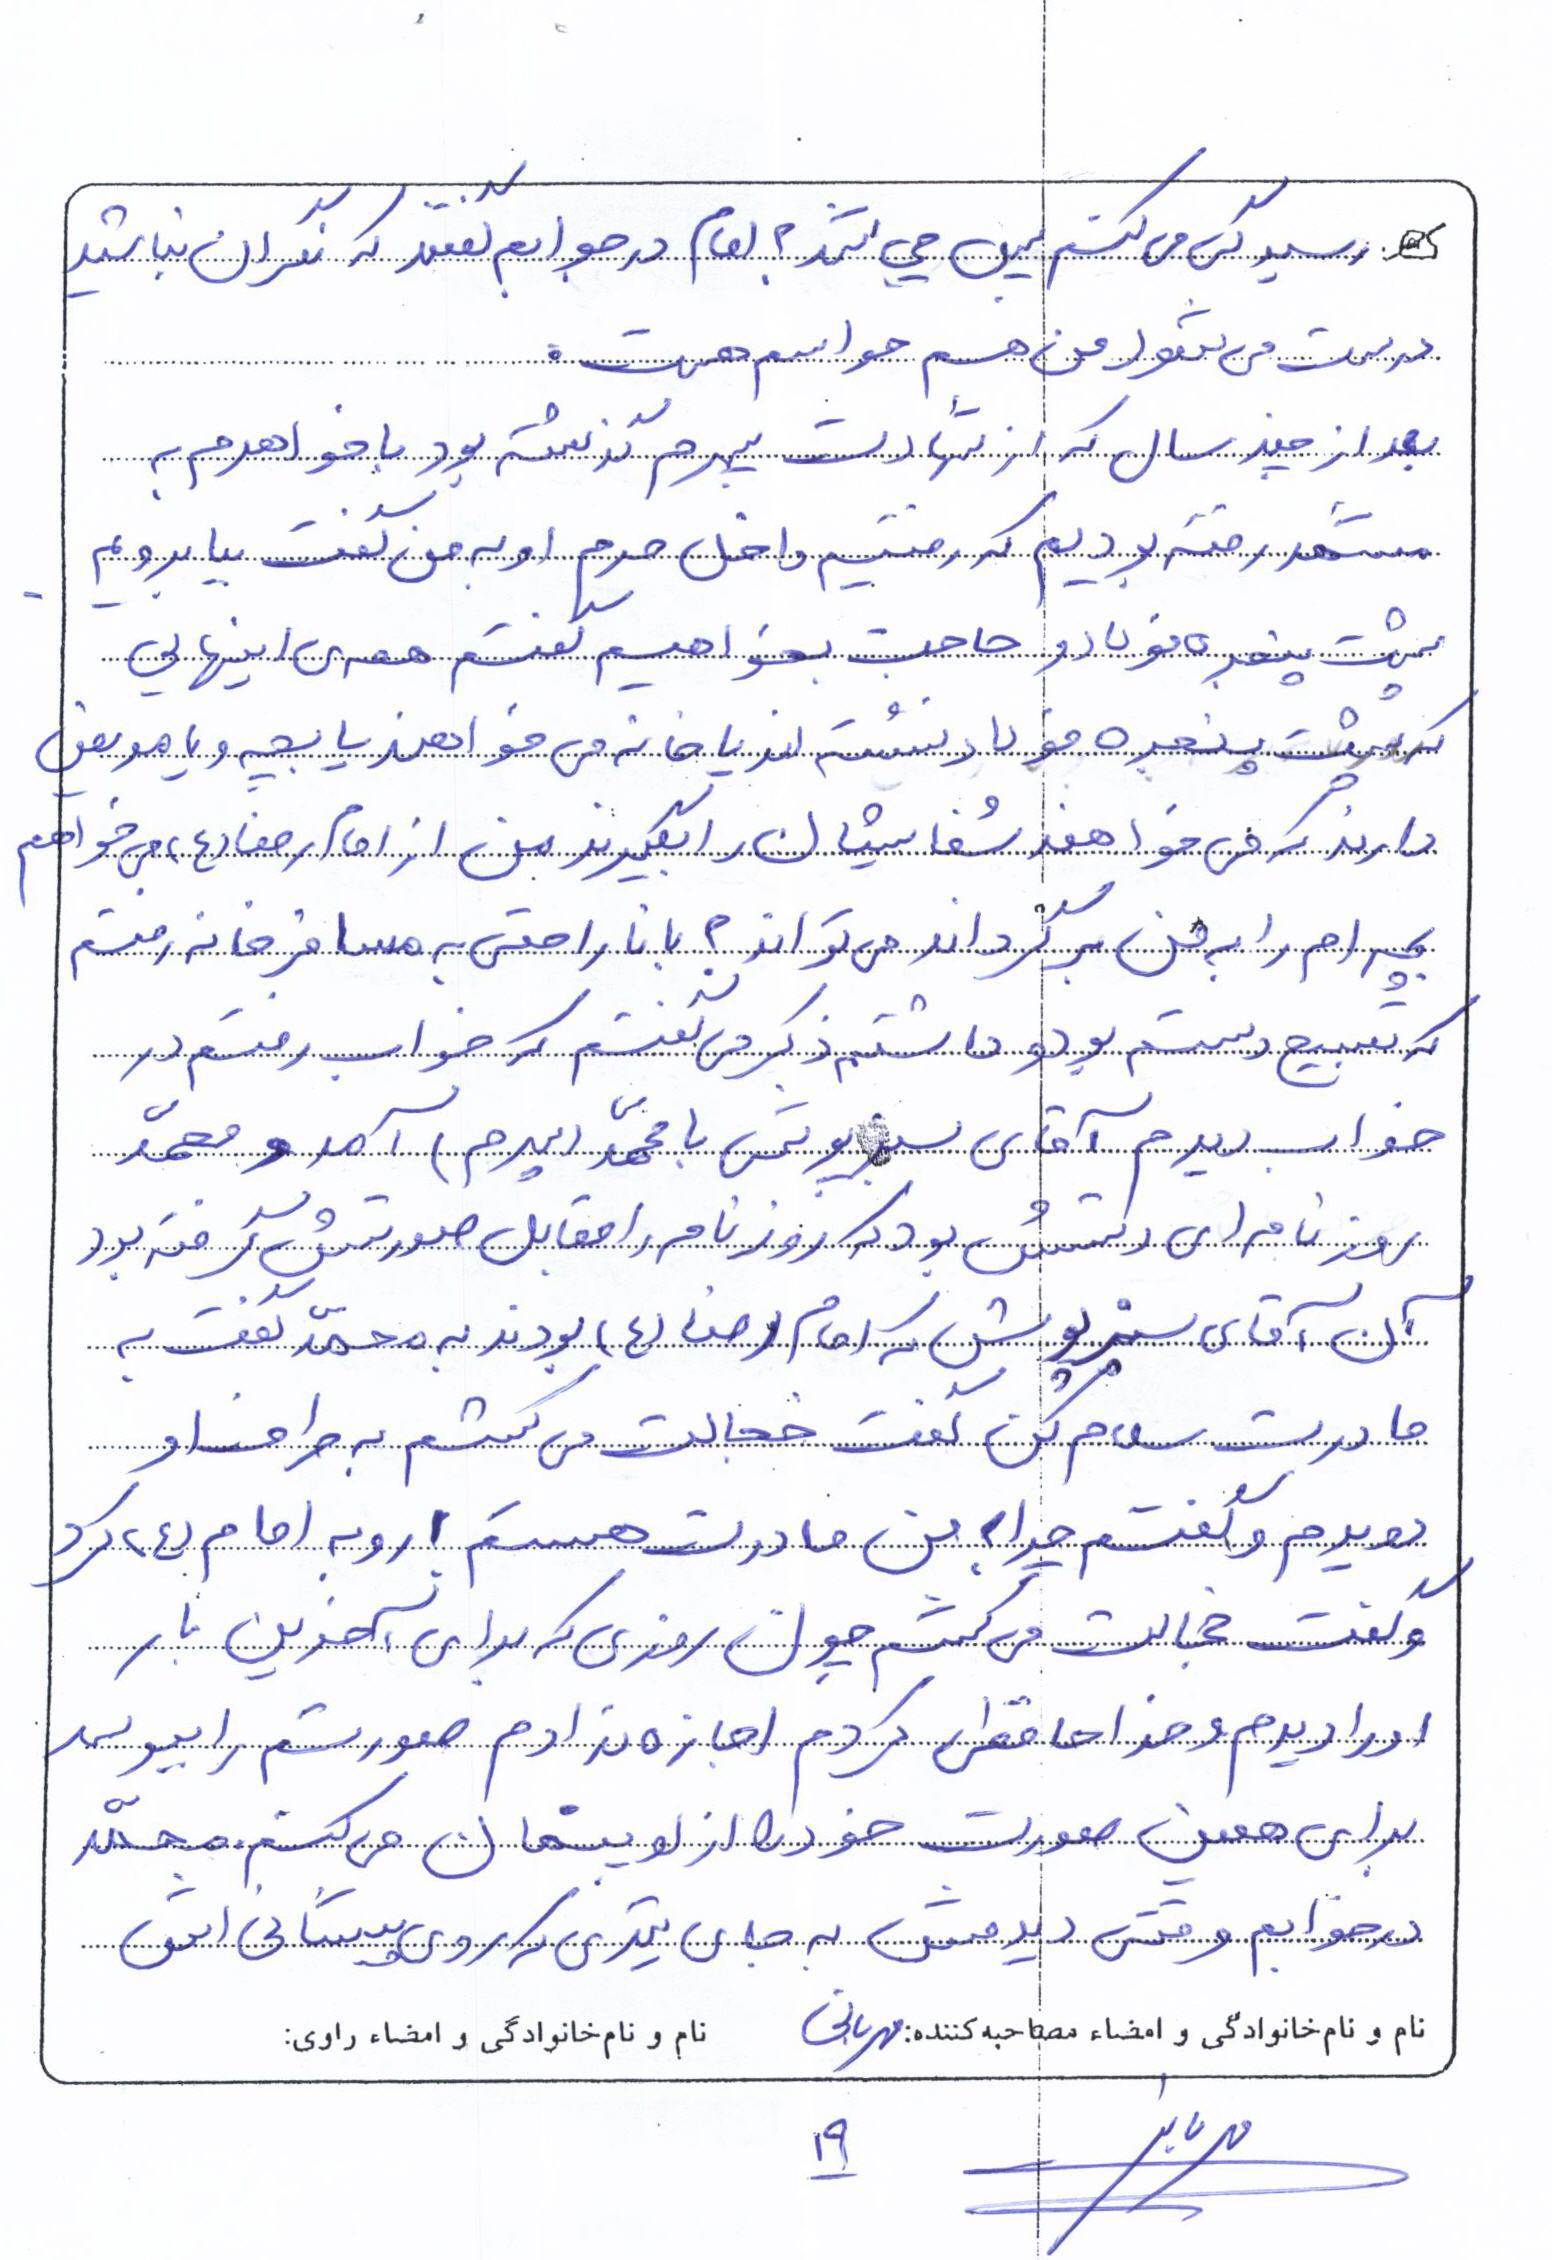 رسیدگی می کنم پس چی شد؟ امام در جوابم گفتند که نگران نباشید
درست می شود من هم حواسم هست.
بعد از چند سال که از شهادت پسرم گذشته بود با خواهرم به
مشهد رفته بودیم که رفتیم داخل حرم او به من گفت بیا برویم
پشت پنجره فولاد و حاجت بخواهیم گفتم همه ی اینهایی
که پشت پنجره فولاد نشسته اند یا خانه می خواهند یا بچه و یا مریض
دارند که می خواهند شفا یشان را بگیرند من از امام رضا (ع) می خواهم
بچه ام را به من برگرداند می تواند؟ با ناراحتی به مسافرخانه رفتم
که تسبیح دستم بود و داشتم ذکر می گفتم که خواب رفتم در
خواب دیدم آقای سبز پوشی با محمّد (پسرم) آمد و محمّد
روزنامه ای دستش بود که روزنامه را مقابل صورتش گرفته بود
آن آقای سبز پوش که امام رضا (ع) بودند به محمّد گفت به
مادرت سلام کن گفت خجالت می کشم به طرف او
دویدم و گفتم چرا؟ من مادرت هستم! رو به امام (ع) کرد
و گفت خجالت می کشم چون روزی که برای آخرین بار
او را دیدم و خداحافظی کردم اجازه ندادم صورتم را ببوسد
برای همین صورت خود را از او پنهان می کنم. محمّد
در خوابم وقتی دیدمش به جای تیری که روی پیشانی اش
نام و نام خانوادگی و امضاء مصاحبه کننده: مهربانی نام و نام خانوادگی و امضاء راوی:
مهربانی
۱۹